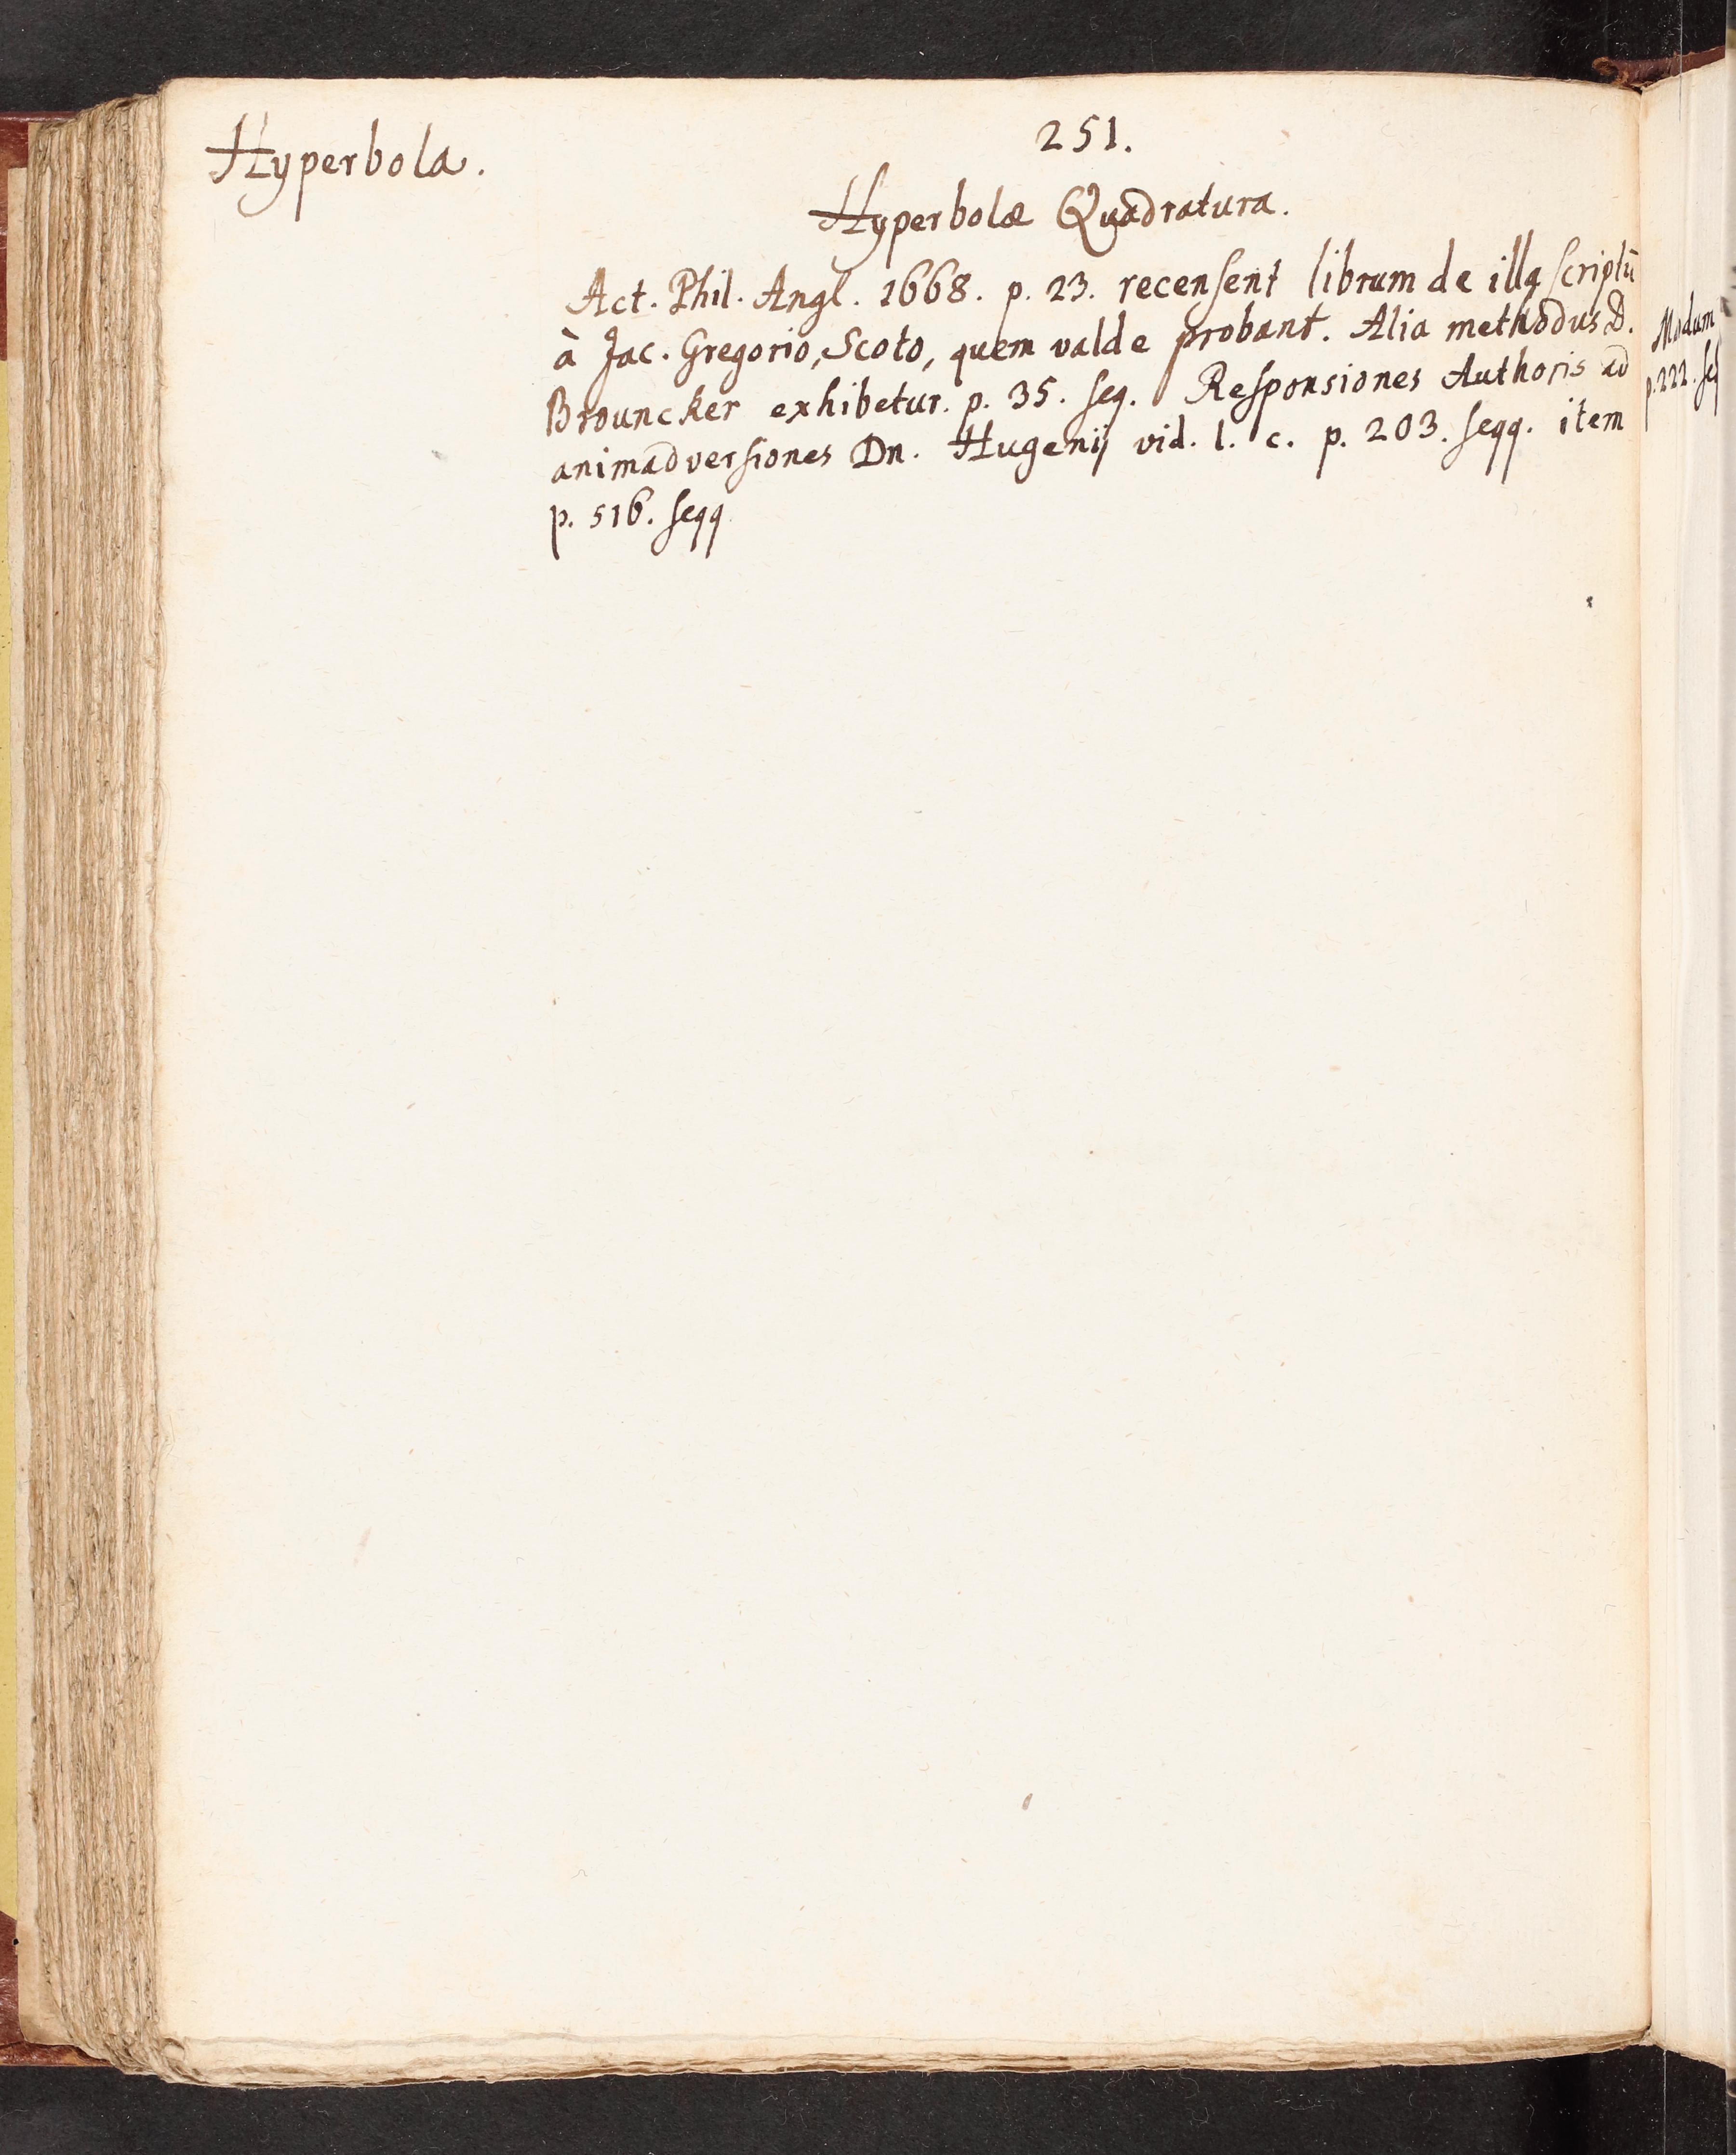 Hyperbola.
251.
Hyperbolæ Quadratura.
Act. Phil. Angl. 1668. p. 23. recenſent librum de illa ſcriptū
à Jac. Gregorio, Scoto, quem valde probant. Alia methodus D.
Brouncker exhibetur. p. 35. ſeq. Reſponsiones Authoris ad
animadverſiones Dn. Hugenij vid. l. c. p. 203. ſeqq. item
p. 516. ſeqq
Modum
p. 222. ſeq